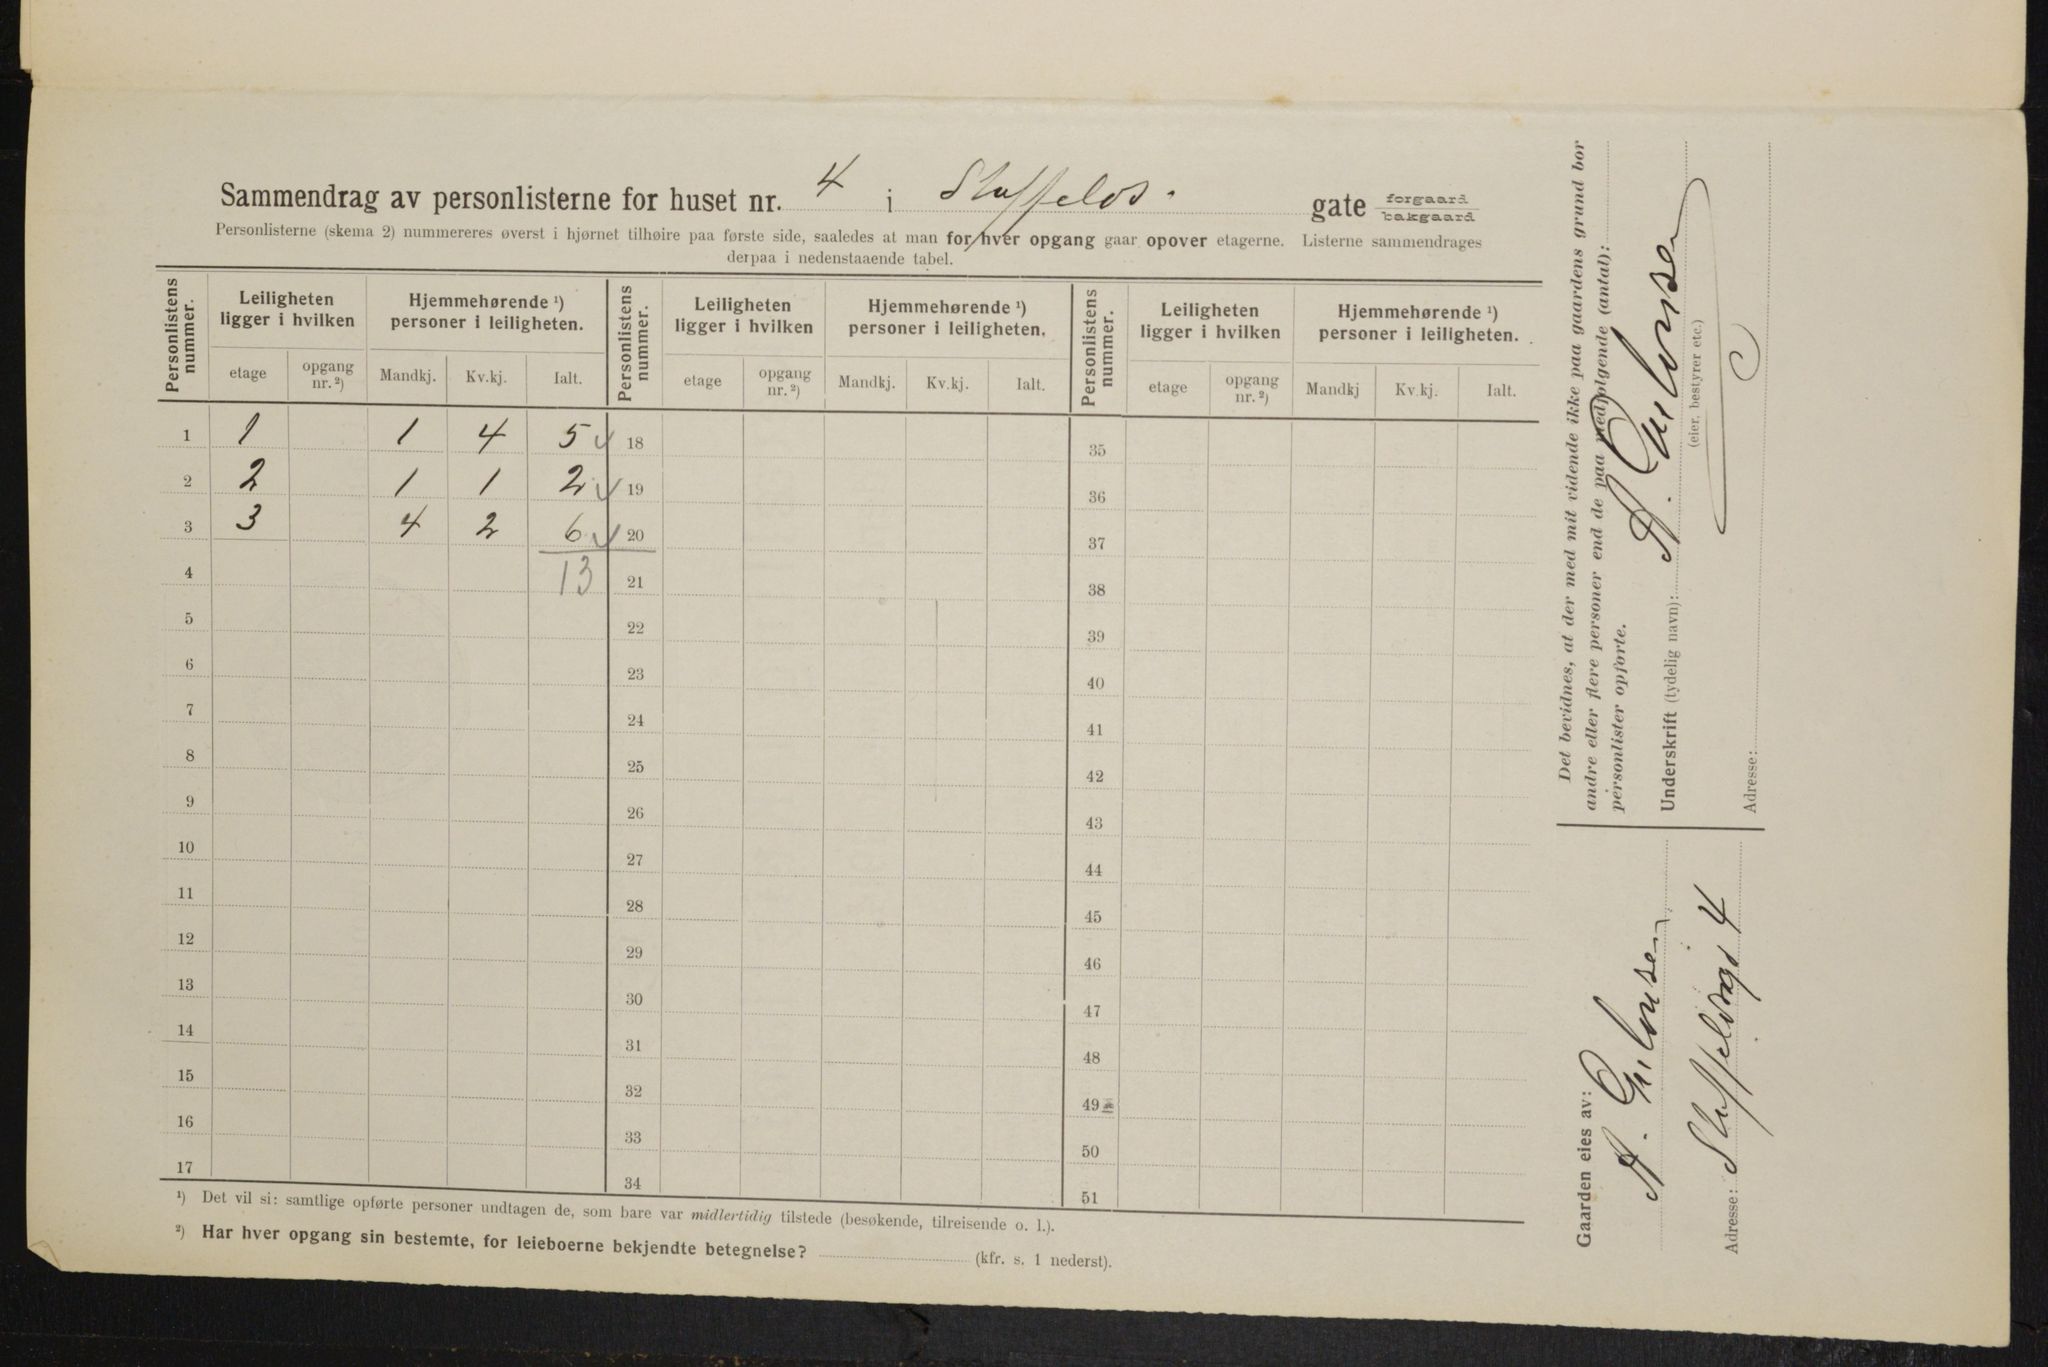 Sammendrag av personlisterne for huset nr. 4 i Staffelds. gate forgaard bakgaard
Personlisterne (skema 2) nummereres øverst i hjørnet tilhøire paa første side, saaledes at man for hver opgang gaar opover etagerne. Listerne sammendrages
derpaa i nedenstaaende tabel.
Personlistens nummer. Leiligheten ligger i hvilken Hjemmehørende ¹) personer i leiligheten. Personlistens nummer. Leiligheten ligger i hvilken Hjemmehørende ¹) personer i leiligheten. Personlistens nummer. Leiligheten ligger i hvilken Hjemmehørende ¹) personer i leiligheten.
etage opgang nr. ²) Mandkj. Kv.kj. Ialt. etage opgang nr. ²) Mandkj. Kv.kj. Ialt. etage opgang nr. ²) Mandkj Kv.kj. Ialt.
1 1 1 4 5 18 35
2 2 1 1 2 19 36
3 3 4 2 6 20 37
4 13 21 38
5 22 39
6 23 40
7 24 41
8 25 42
9 26 43
10 27 44
11 28 45
12 29 46
13 30 47
14 31 48
15 32 49
16 33 50
17 34 51
¹) Det vil si: samtlige opførte personer undtagen de, som bare var midlertidig tilstede (besøkende, tilreisende o. l.).
²) Har hver opgang sin bestemte, for leieboerne bekjendte betegnelse? (kfr. s. 1 nederst).
Det bevidnes, at der med mit vidende ikke paa gaardens grund bor
andre eller flere personer end de paa medfølgende (antal):
personlister opførte.
Underskrift (tydelig navn): A.
(eier, bestyrer etc.)
Adresse:
Gaarden eies av:
A.
Adresse: Staffeldsgt 4